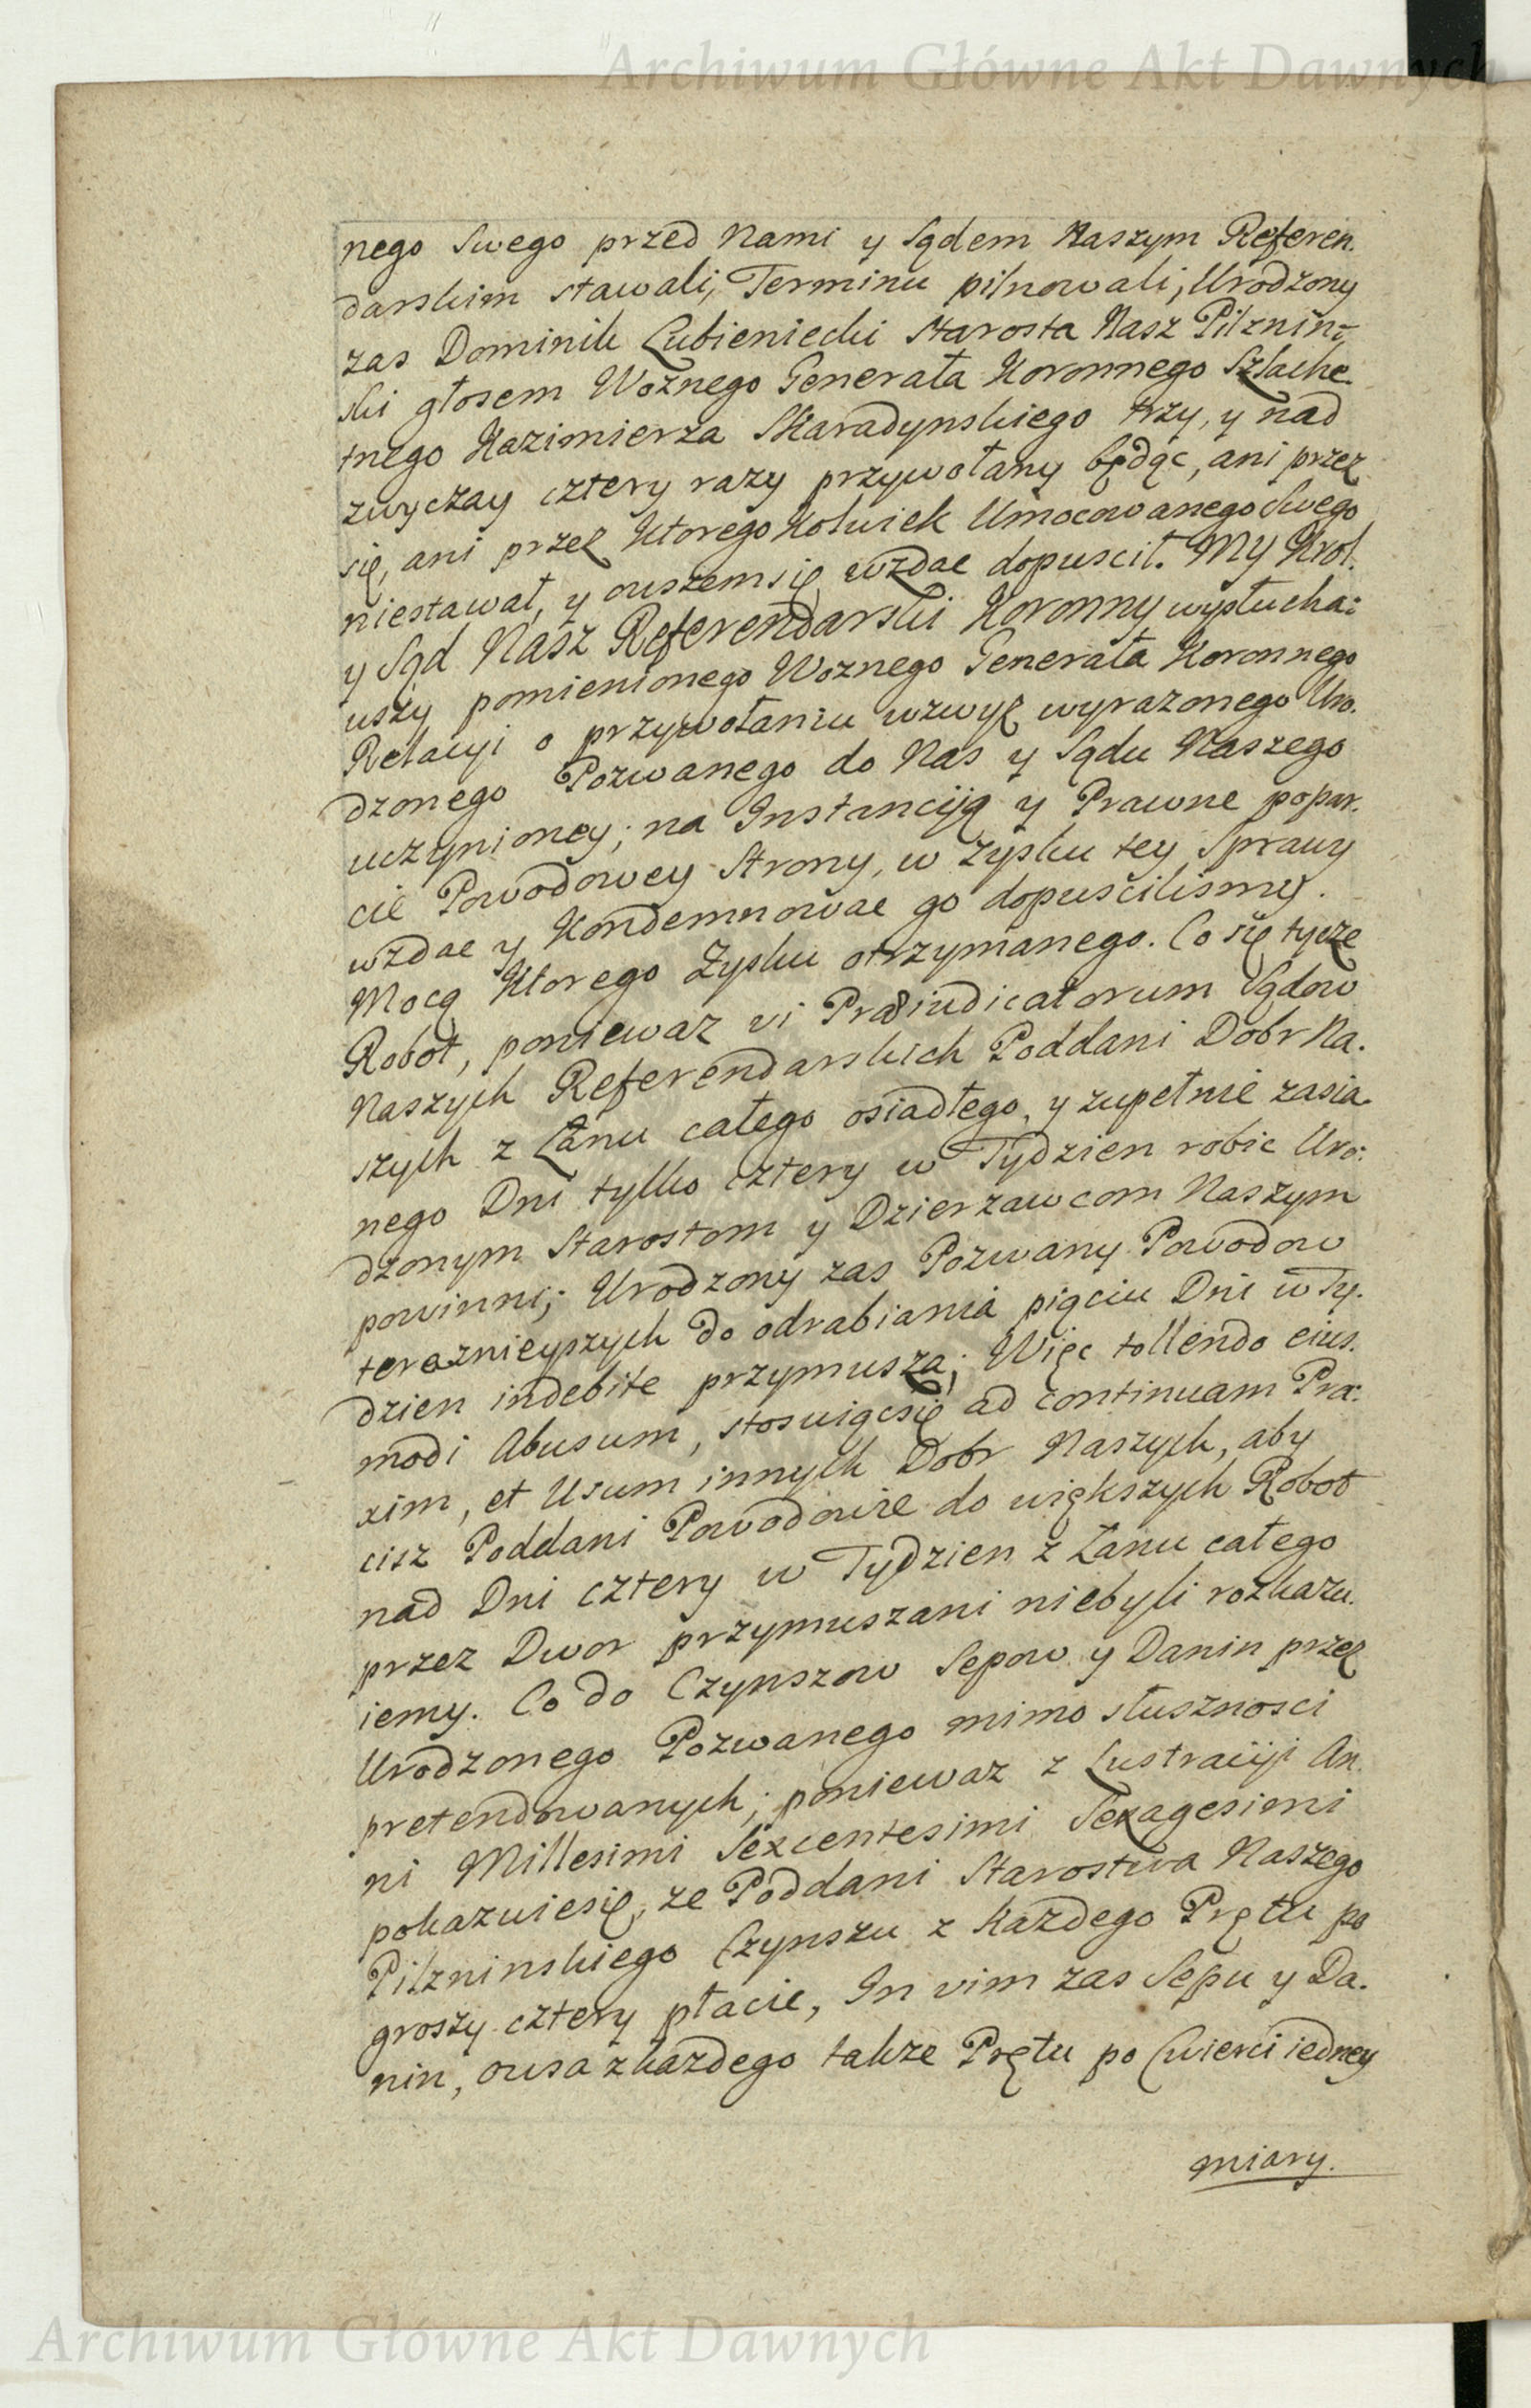 Archiwum Główne Akt Dawnych
nego Swego przed Nami y Sądem Naszym Referen.
darskim stawali, Terminu pilnowali, Urodzony
zas Dominik Lubieniecki Starosta Nasz Pilznin:
ski głosem Woznego Generała Koronnego Szlache.
tnego Kazimierza Skaradynskiego trzy, y nad
zwyczay cztery razy przywołany będąc, ani przez
się, ani przez Ktorego Kolwiek Umocowanego Swego
niestawał, y owszem się wzdac dopuscił. My Krol.
y Sąd Nasz Referendarski Koronny wysłucha:
wszy pomienionego Woznego Generała Koronnego
Relacyi o przywołaniu wzwyż wyrazonego Uro.
dzonego Pozwanego do Nas y Sądu Naszego
uczynioney; na Instancyją y Prawne popar.
cie Powodowey Strony, w zysku tey Sprawy
wzdac y Kondemnowac go dopuścilismy.
Mocą Ktorego Zysku otrzymanego. Co się tycze
Robot, poniewaz vi Præiudicatorum Sądow
Naszych Referendarskich Poddani Dobr Na.
szych z Łanu całego osiadłego, y zupełnie zasia.
nego Dni tylko cztery w Tydzien robic Uro:
dzonym Starostom y Dzierzawcom Naszym
powinni; Urodzony zas Pozwany Powodow
teraznieyszych do odrabiania pięciu Dni w Ty.
dzien indebite przymusza; Więc tollendo eius.
modi Abusum, stosuiącsię ad continuam Pra:
xim, et Usum innych Dobr Naszych, aby
cisz Poddani Powodowie do większych Robot
nad Dni cztery w Tydzien z Łanu całego
przez Dwor przymuszani niebyli rozkazu.
iemy. Co do Czynszow Sepow y Danin przez
Urodzonego Pozwanego mimo słusznosci
pretendowanych; poniewaz z Lustracyji An.
ni Millesimi Sexcentesimi Sexagesimi
pokazuiesię, ze Poddani Starostwa Naszego
Pilzninskiego Czynszu z Kazdego Prętu po
groszy cztery płacic, In vim zas Sepu y Da.
nin, owsa z kazdego takze Prętu po Cwierci iedney
miary.
Archiwum Główne Akt Dawnych